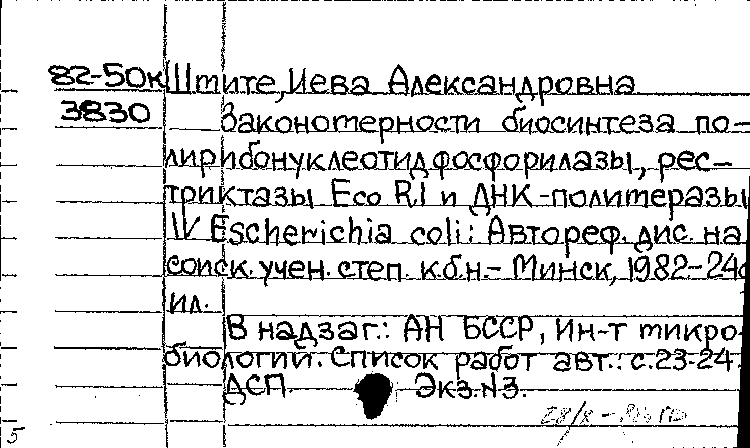 82-50к Штите, Иева Александровна
3830 Закономерности биосинтеза по-
лирибонуклеотидфосфорилазы, рес-
триктазы Eco RI и ДНК-полимеразы
IV Escherichia coli: Автореф. дис. на
соиск. учен. степ. к.б.н.- Минск, 1982-24с
ил.
В надзаг.: АН БССР, Ин-т микро-
биологии. Список работ авт.: с.23-24.
ДСП. Экз.№3.
5